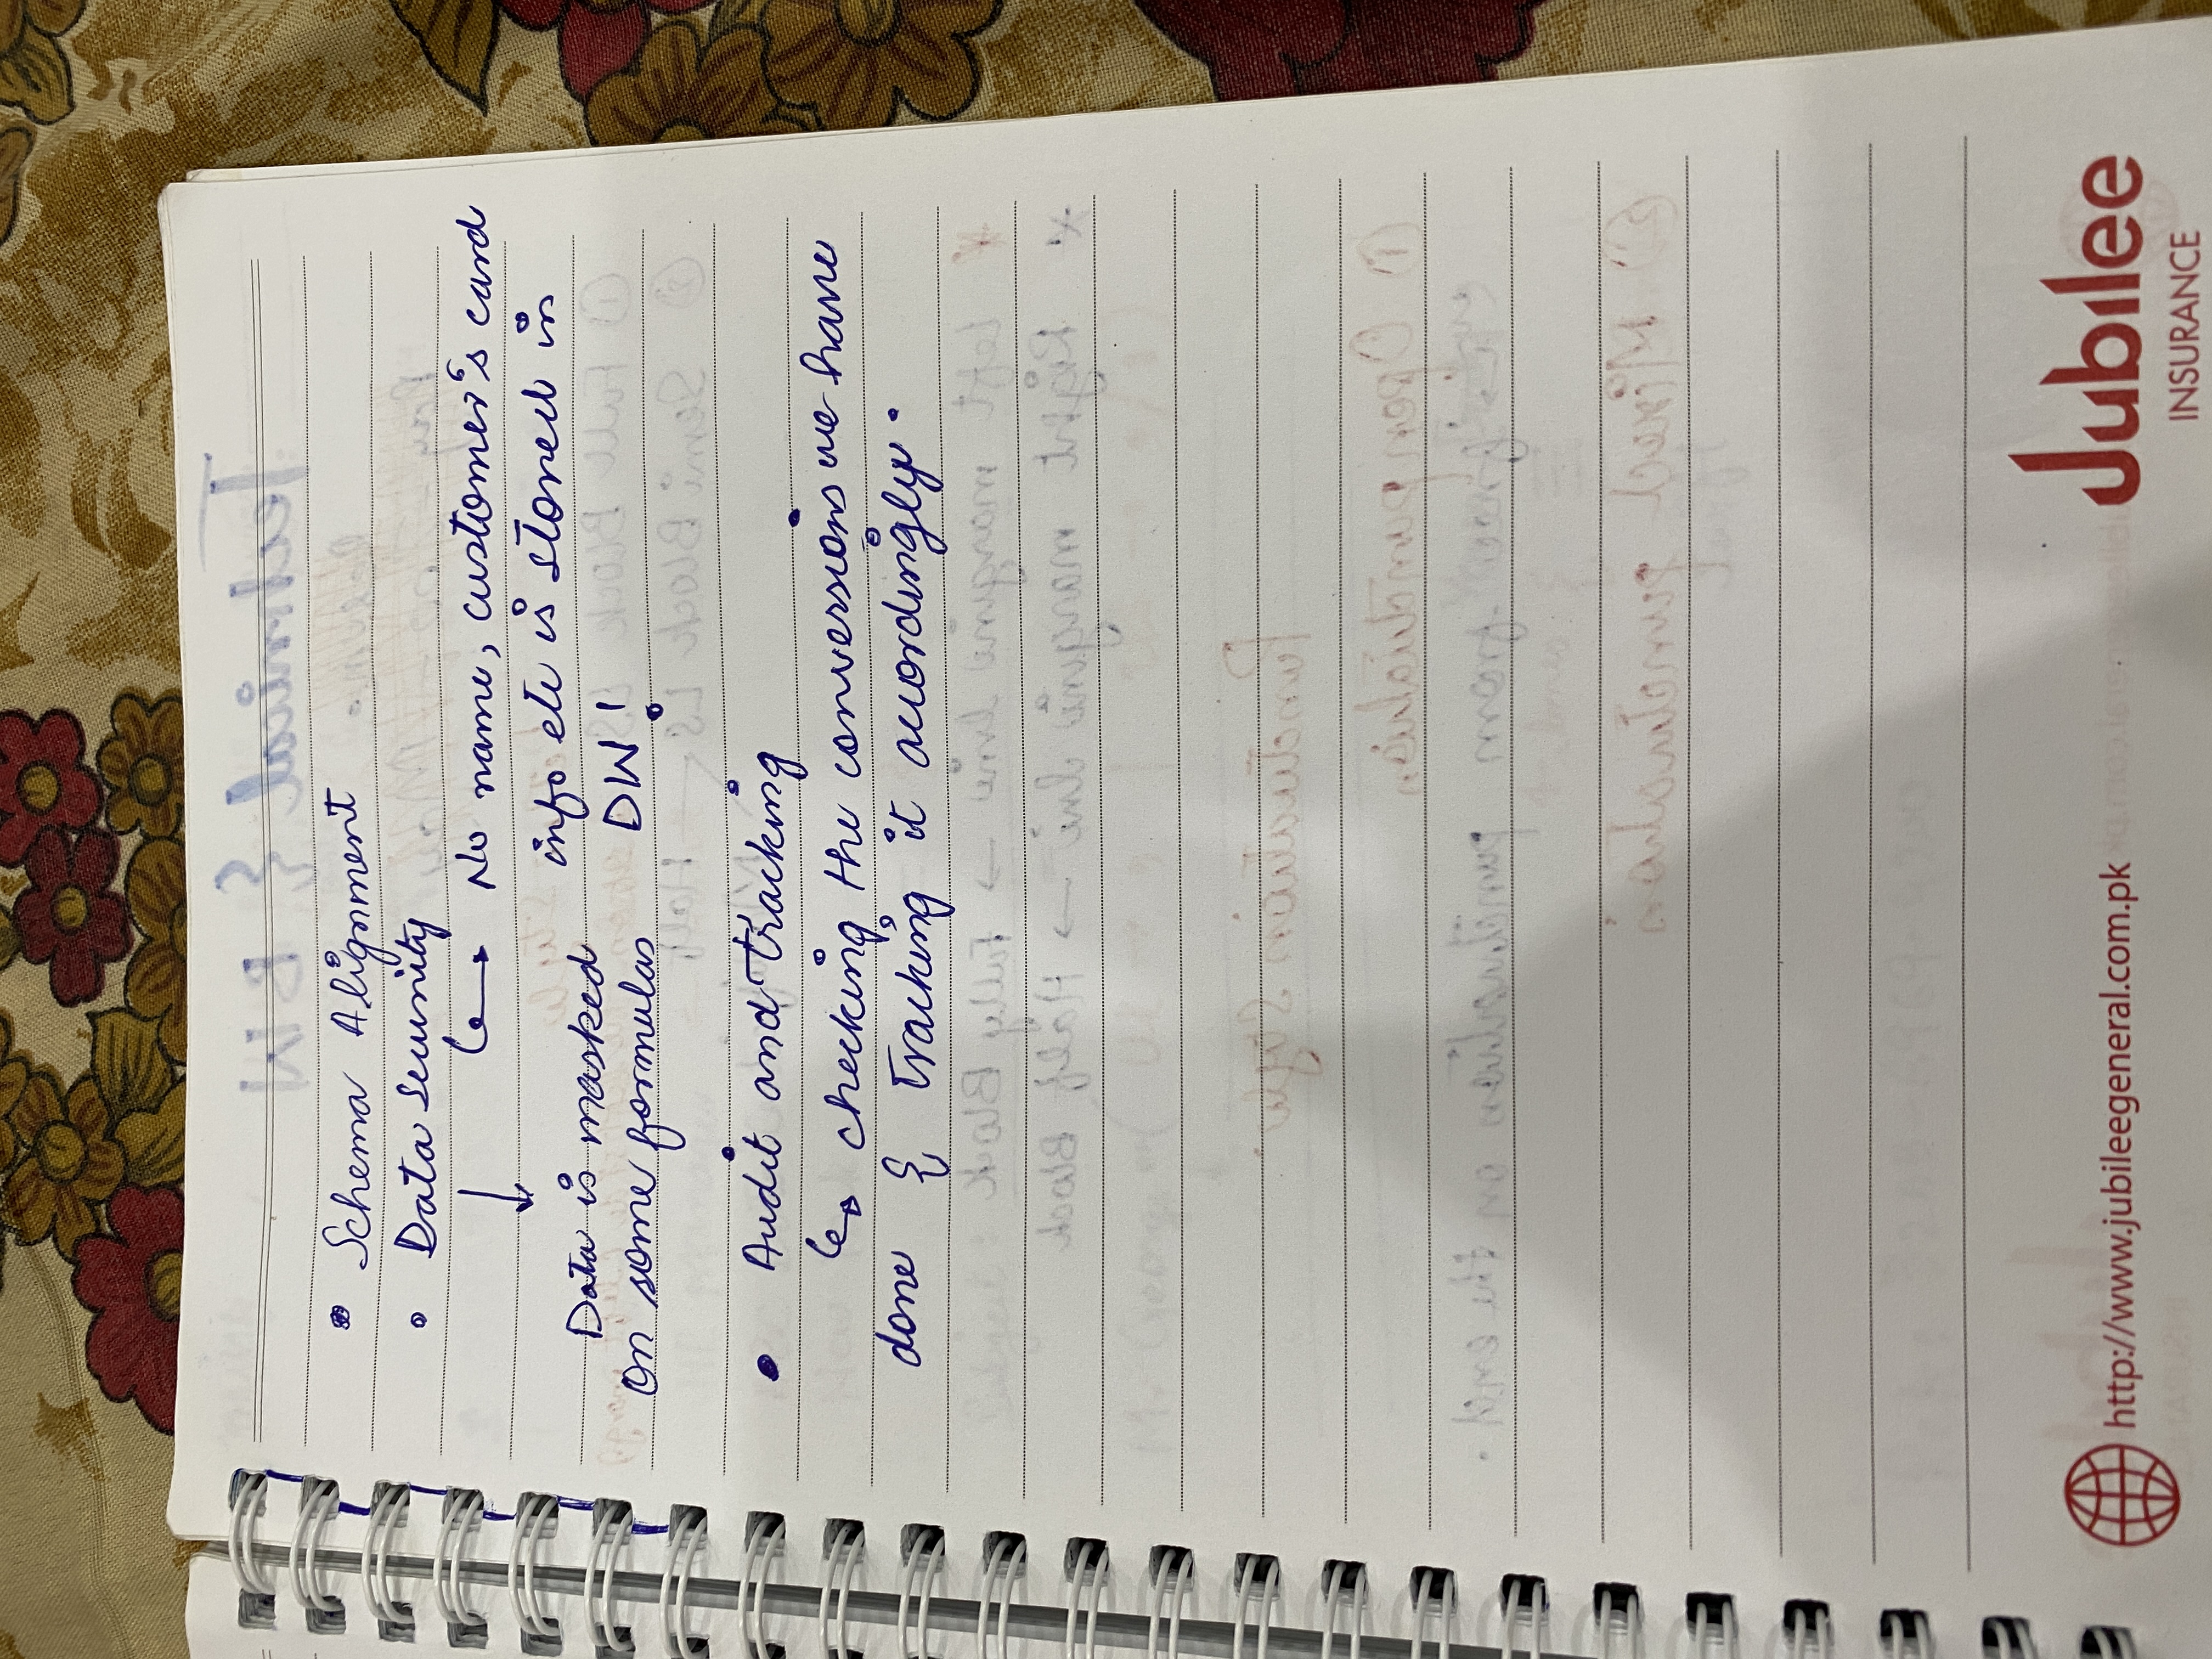 • Schema Alignment
• Data Security
↳ No name, customer's card
info etc is stored in
DW!
↓
Data is masked
on some formulas
• Audit and Tracking
↳ checking the conversions we have
done & Tracking it accordingly.
http://www.jubileegeneral.com.pk
Jubilee
INSURANCE